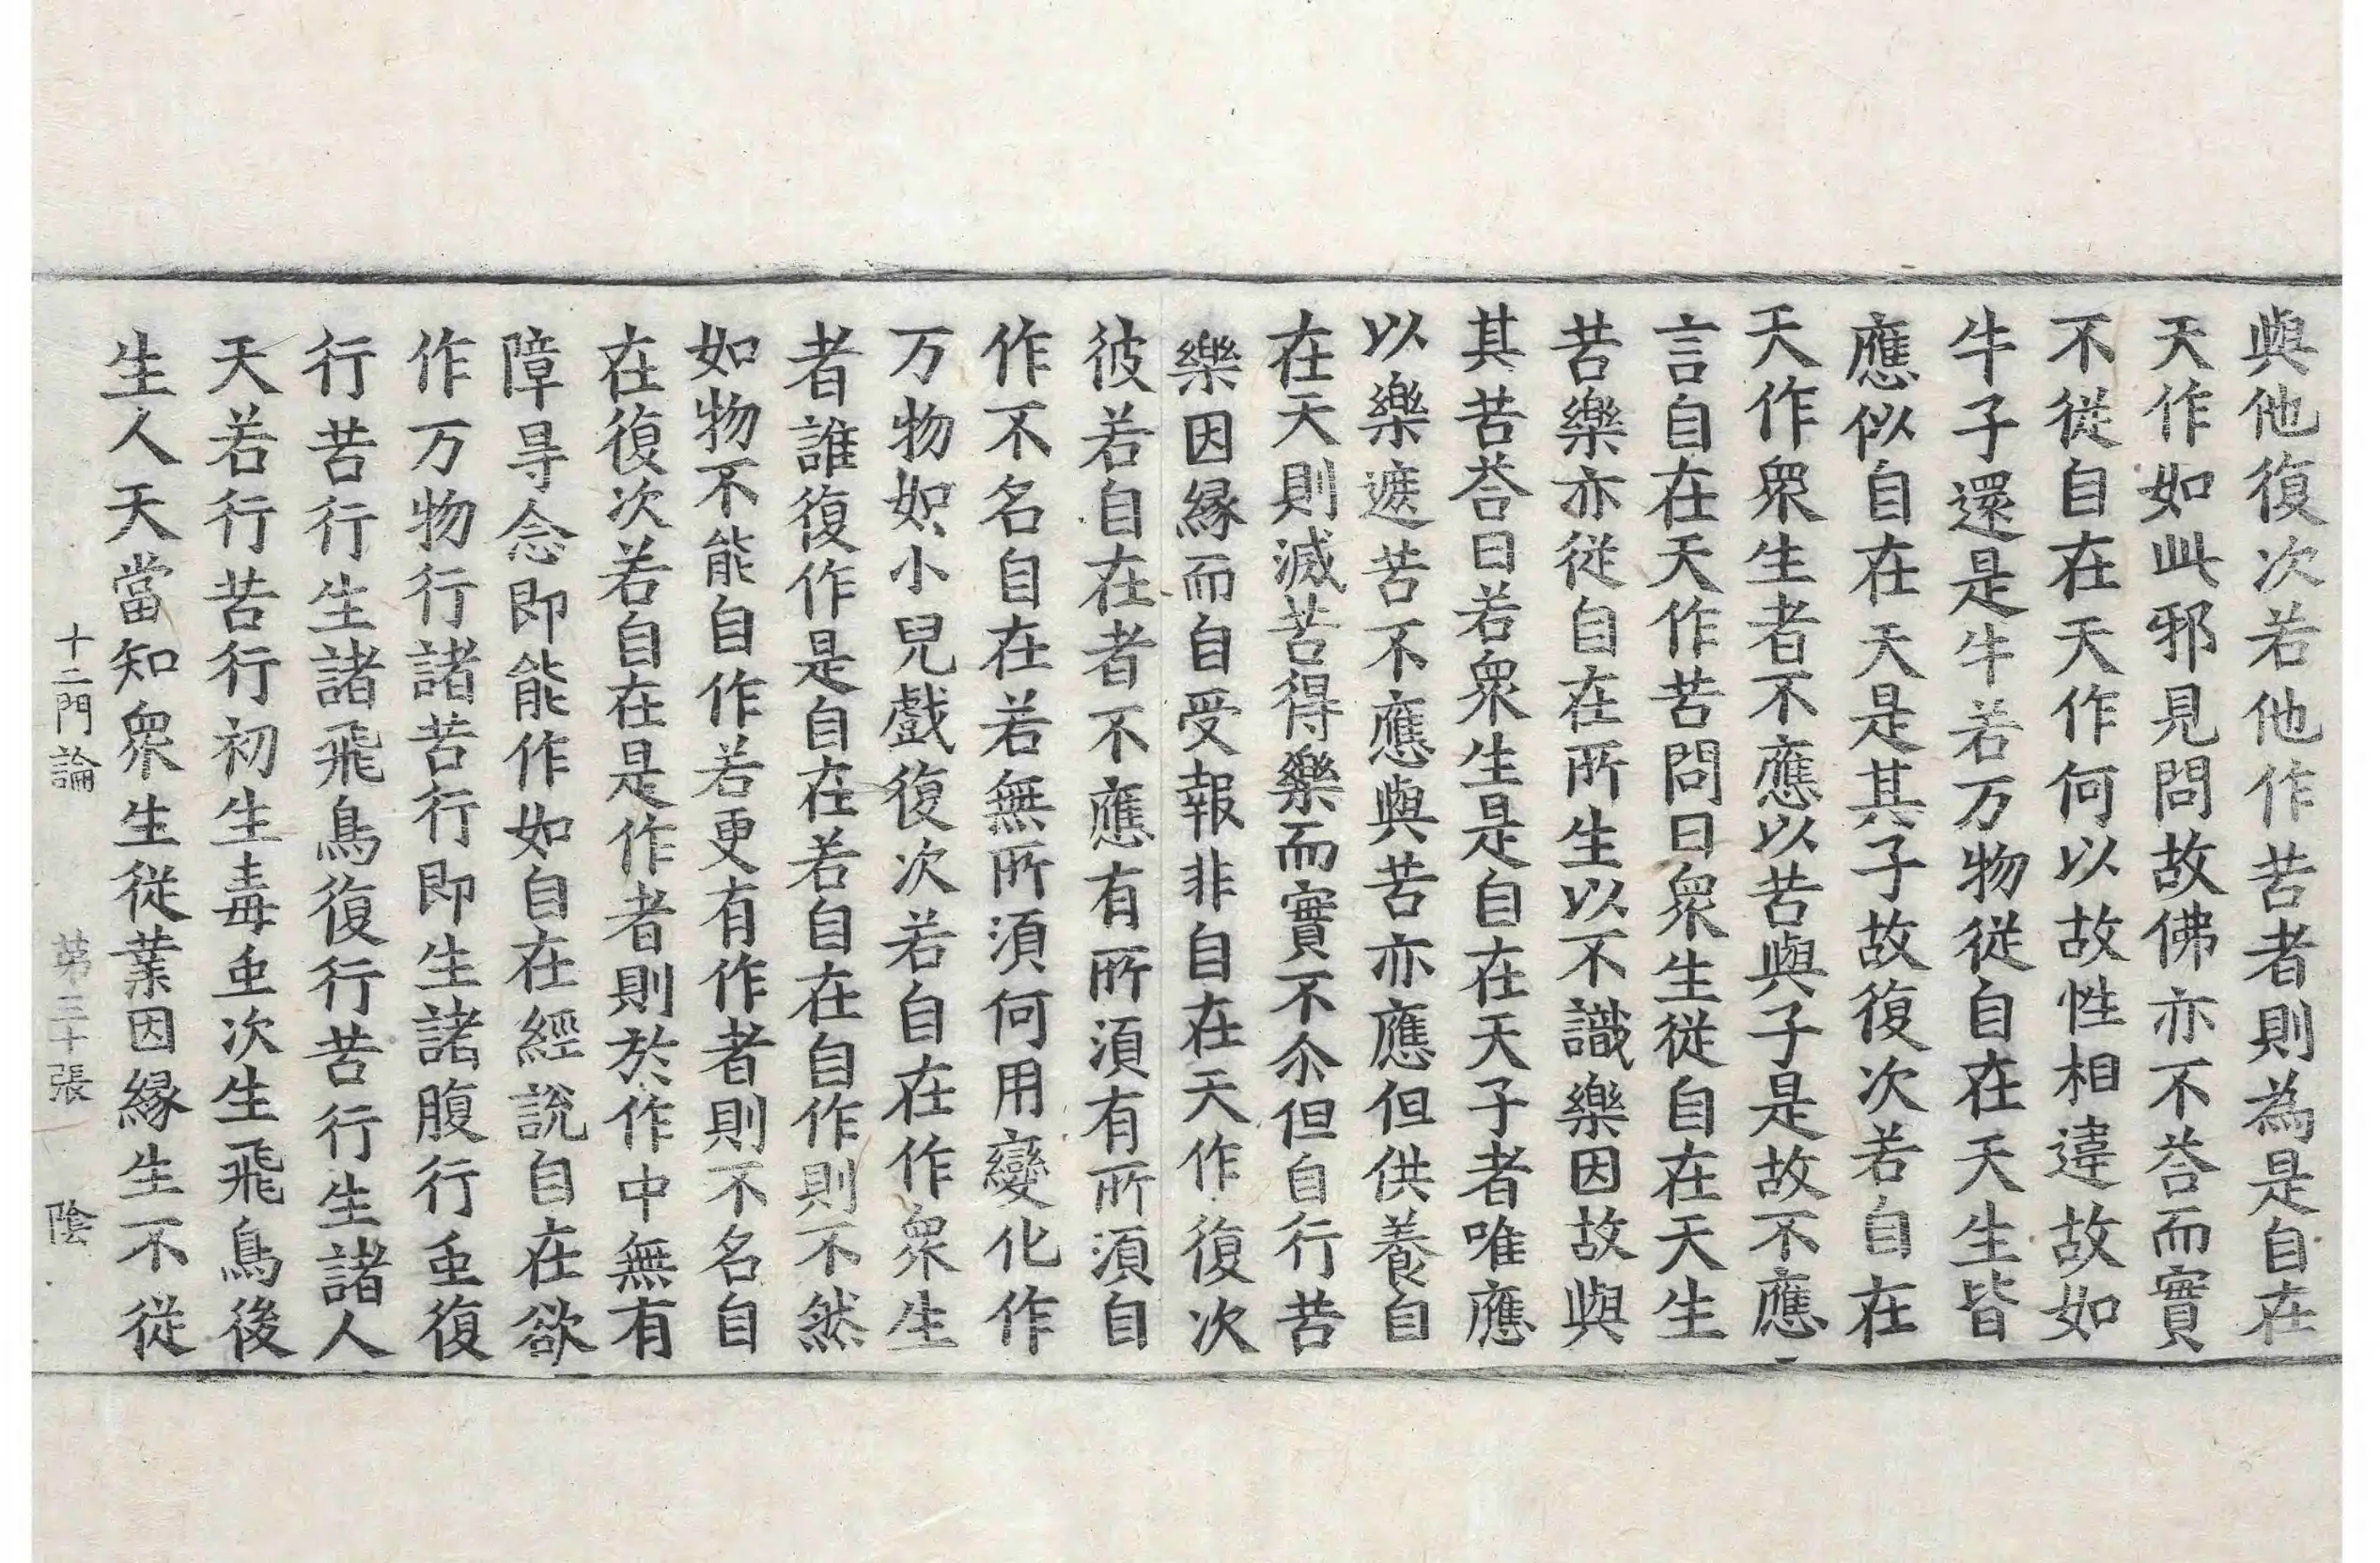 與他復次若他作苦者則為是自在
天作如此邪見問故佛亦不荅而實
不從自在天作何以故性相違故如
牛子還是牛若万物從自在天生皆
應似自在天是其子故復次若自在
天作衆生者不應以苦與子是故不應
言自在天作苦問曰衆生從自在天生
苦樂亦從自在所生以不識樂因故與
其苦荅曰若衆生是自在天子者唯應
以樂遮苦不應與苦亦應但供養自
在天則滅苦得樂而實不尒但自行苦
樂因緣而自受報非自在天作復次
彼若自在者不應有所須有所須自
作不名自在若無所須何用變化作
万物如小兒戲復次若自在作衆生
者誰復作是自在若自在自作則不然
如物不能自作若更有作者則不名自
在復次若自在是作者則於作中無有
障㝵念即能作如自在經說自在欲
作万物行諸苦行即生諸腹行虫復
行苦行生諸飛鳥復行苦行生諸人
天若行苦行初生毒虫次生飛鳥後
生人天當知衆生從業因緣生不從
十二門論 苐三十張 陰